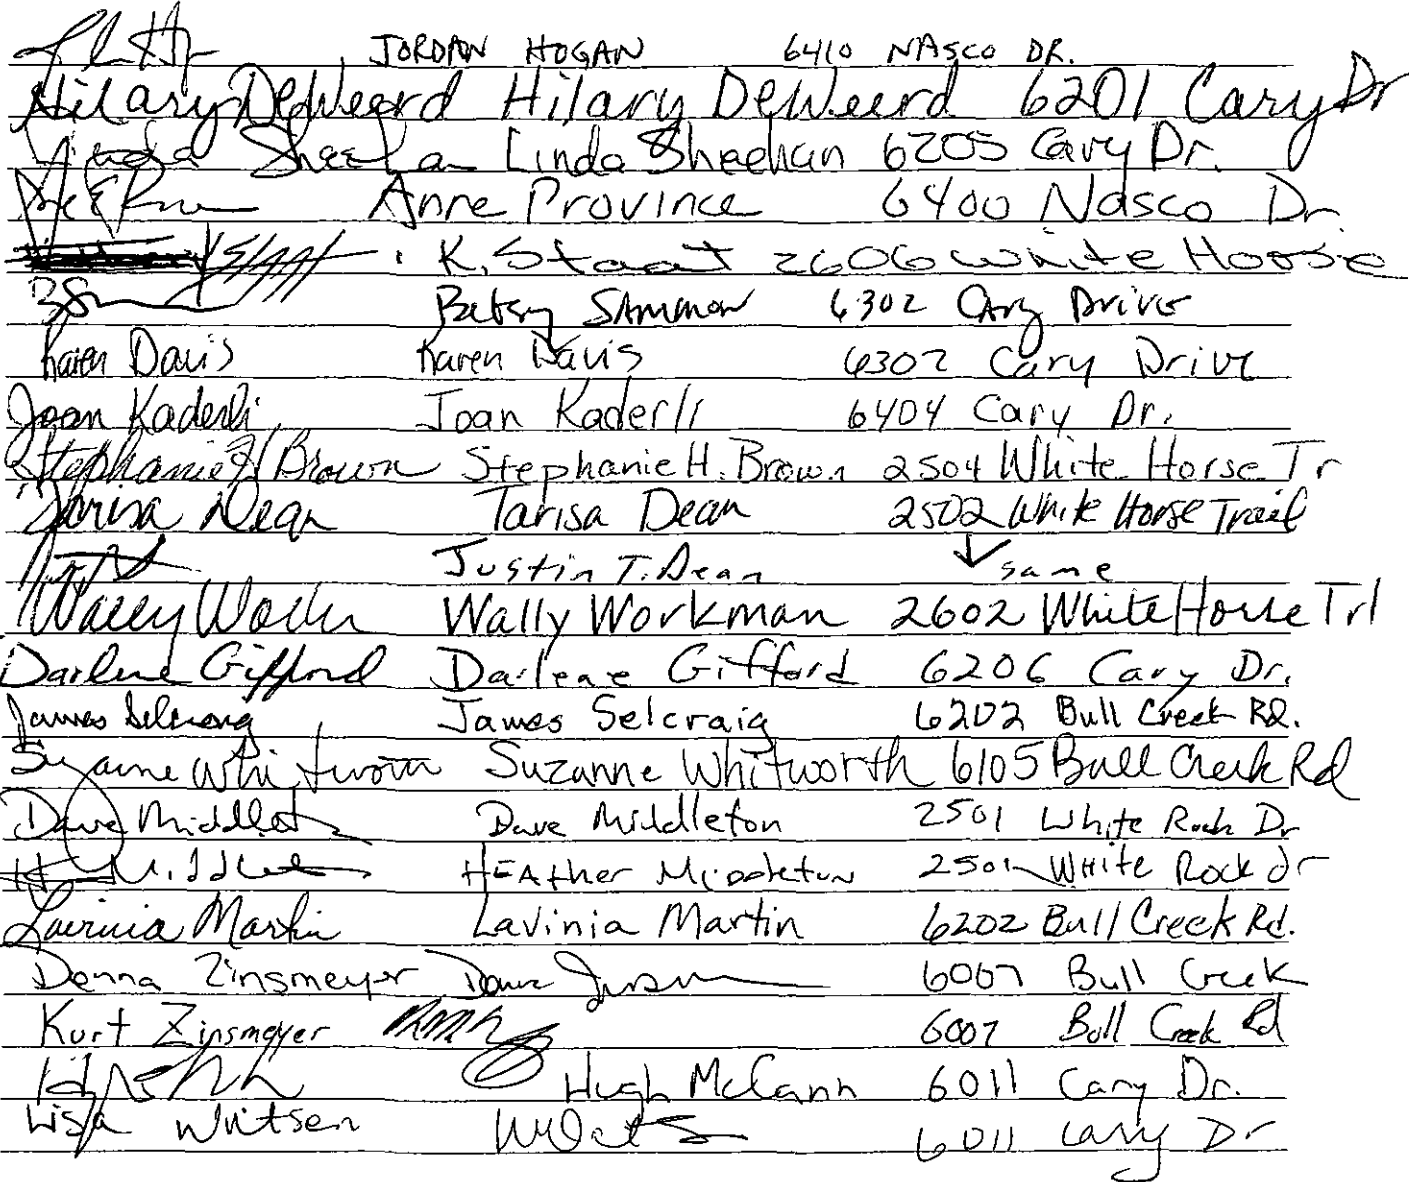 JORDAN HOGAN 6410 NASCO DR.
Hilary DeWeerd Hilary DeWeerd 6201 Cary Dr
Linda Sheehan Linda Sheehan 6205 Cary Dr.
Anne Province 6400 Nasco Dr.
K. Staat 2606 White Horse
Betsy SAMMON 6302 Cary Drive
Karen Davis Karen Davis 6302 Cary Drive
Joan Kaderli Joan Kaderli 6404 Cary Dr.
Stephanie H Brown Stephanie H. Brown 2504 White Horse Tr
Tarisa Dean Tarisa Dean 2502 White Horse Trail
Justin T. Dean same
Wally Workman 2602 White Horse Trl
Darlene Gifford Darlene Gifford 6206 Cary Dr.
James Selcraig James Selcraig 6202 Bull Creek Rd.
Suzanne Whitworth Suzanne Whitworth 6105 Bull Creek Rd
Dave Middleton Dave Middleton 2501 White Rock Dr
HEAther Middleton 2501 White Rock dr
Lavinia Martin Lavinia Martin 6202 Bull Creek Rd.
Donna Zinsmeyer 6007 Bull Creek
Kurt Zinsmeyer 6007 Bull Creek Rd
Hugh McCann 6011 Cary Dr.
Lisa 6011 Cary Dr